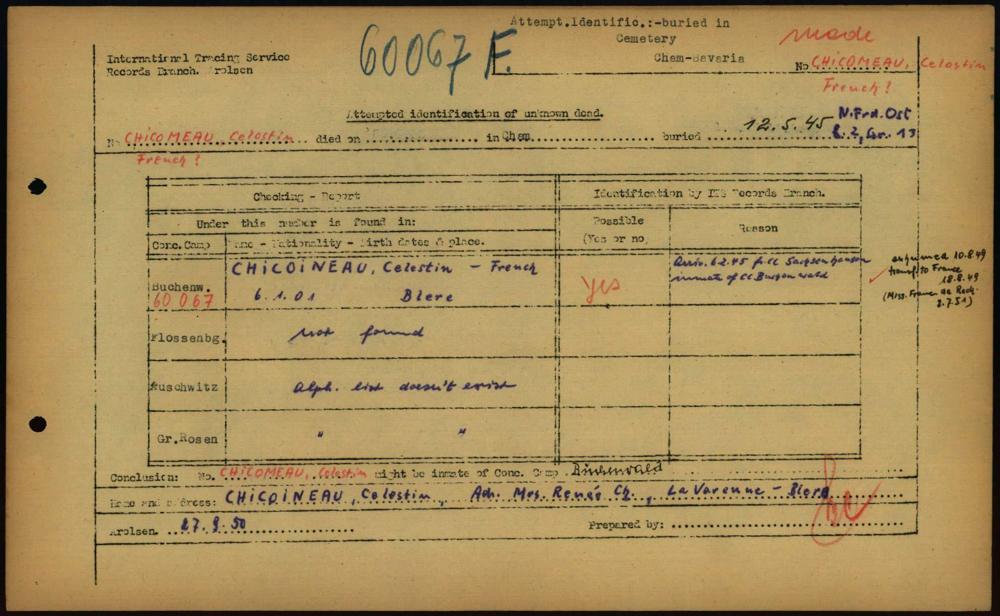 Attempt.Identific.:-buried in
Cemetery
Cham-Bavaria
60067 F.
made
International Tracing Service
Records Branch. Arolsen
No CHICOMEAU, Celestin
French!
Attempted identification of unknown dead.
N.Frd.Ost
No CHICOMEAU, Celestin died on in Cham buried 12.5.45 R.2, Gr. 13
French!
Checking - Report
Identification by ITS Records Branch.
Under this number is found in:
Possible
(Yes or no)
Reason
Conc.Camp
Name - Nationality - Birth dates & place.
Buchenw.
60067
CHICOINEAU, Celestin - French
6.1.01 Blere
yes
Arriv. 6.2.45 fr. CC Sachsenhausen
inmate of CC Buchenwald
exhumed 10.8.49
transf. to France
18.8.49
(Miss. Franc. de Rech.
2.7.51)
Flossenbg.
not found
Auschwitz
Alph. list doesn't exist
Gr.Rosen
" "
Conclusion: No. CHICOMEAU, Celestin might be inmate of Conc. Camp Buchenwald
Name and address: CHICOINEAU, Celestin, Adr. Mrs. Renée Ch., La Varenne - Blere
Arolsen, 27.9.50
Prepared by: